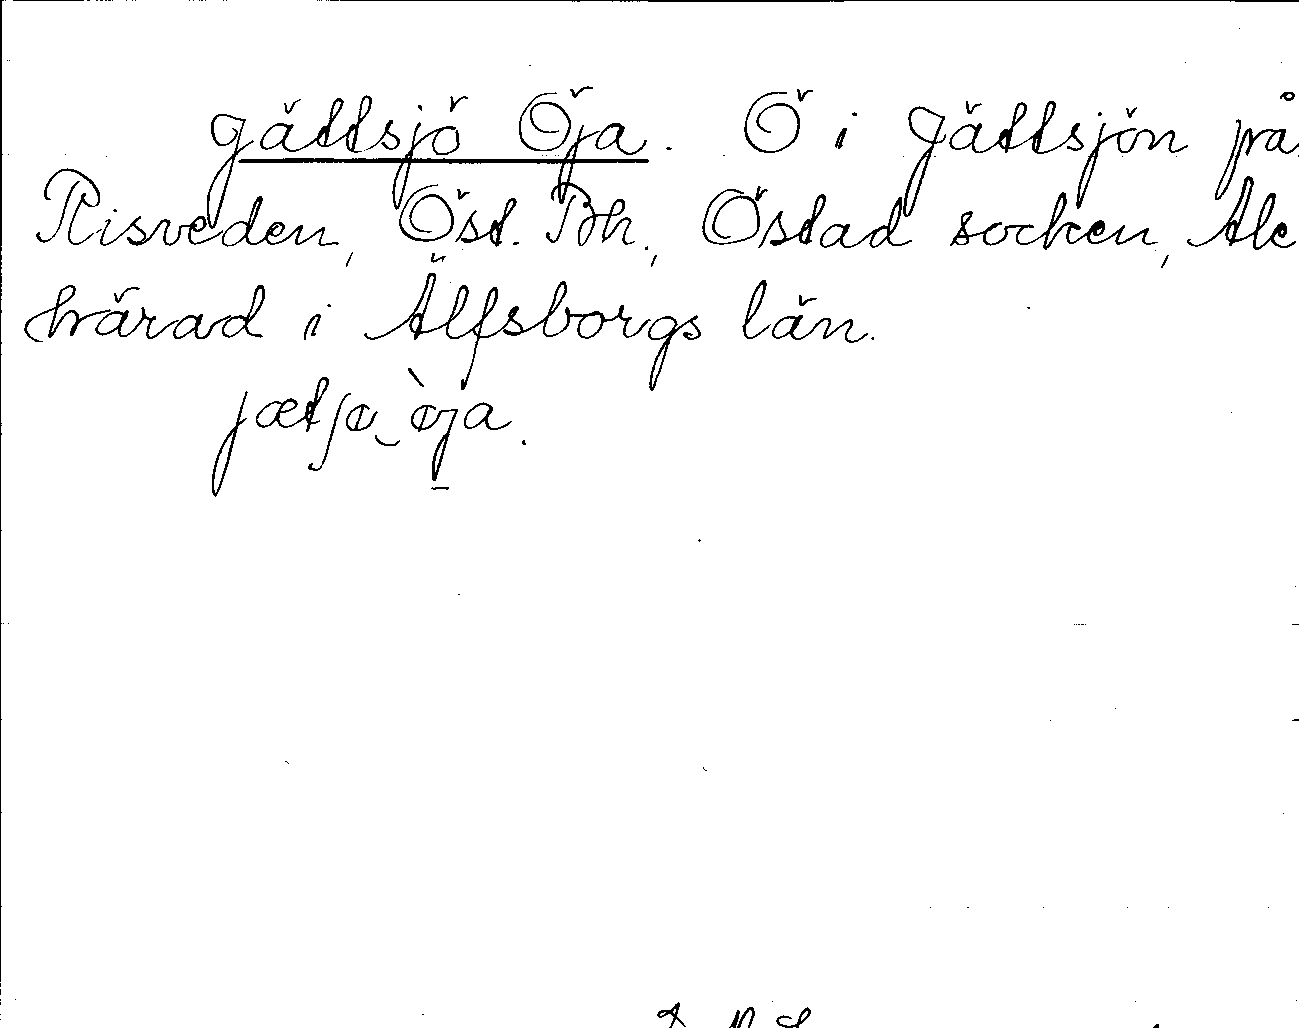 Gättsjö Öja. Ö i Gättsjön på
Risveden, Öst. Bh., Östad socken, Ale
härad i Älfsborgs län.
jætʃø‿òja.